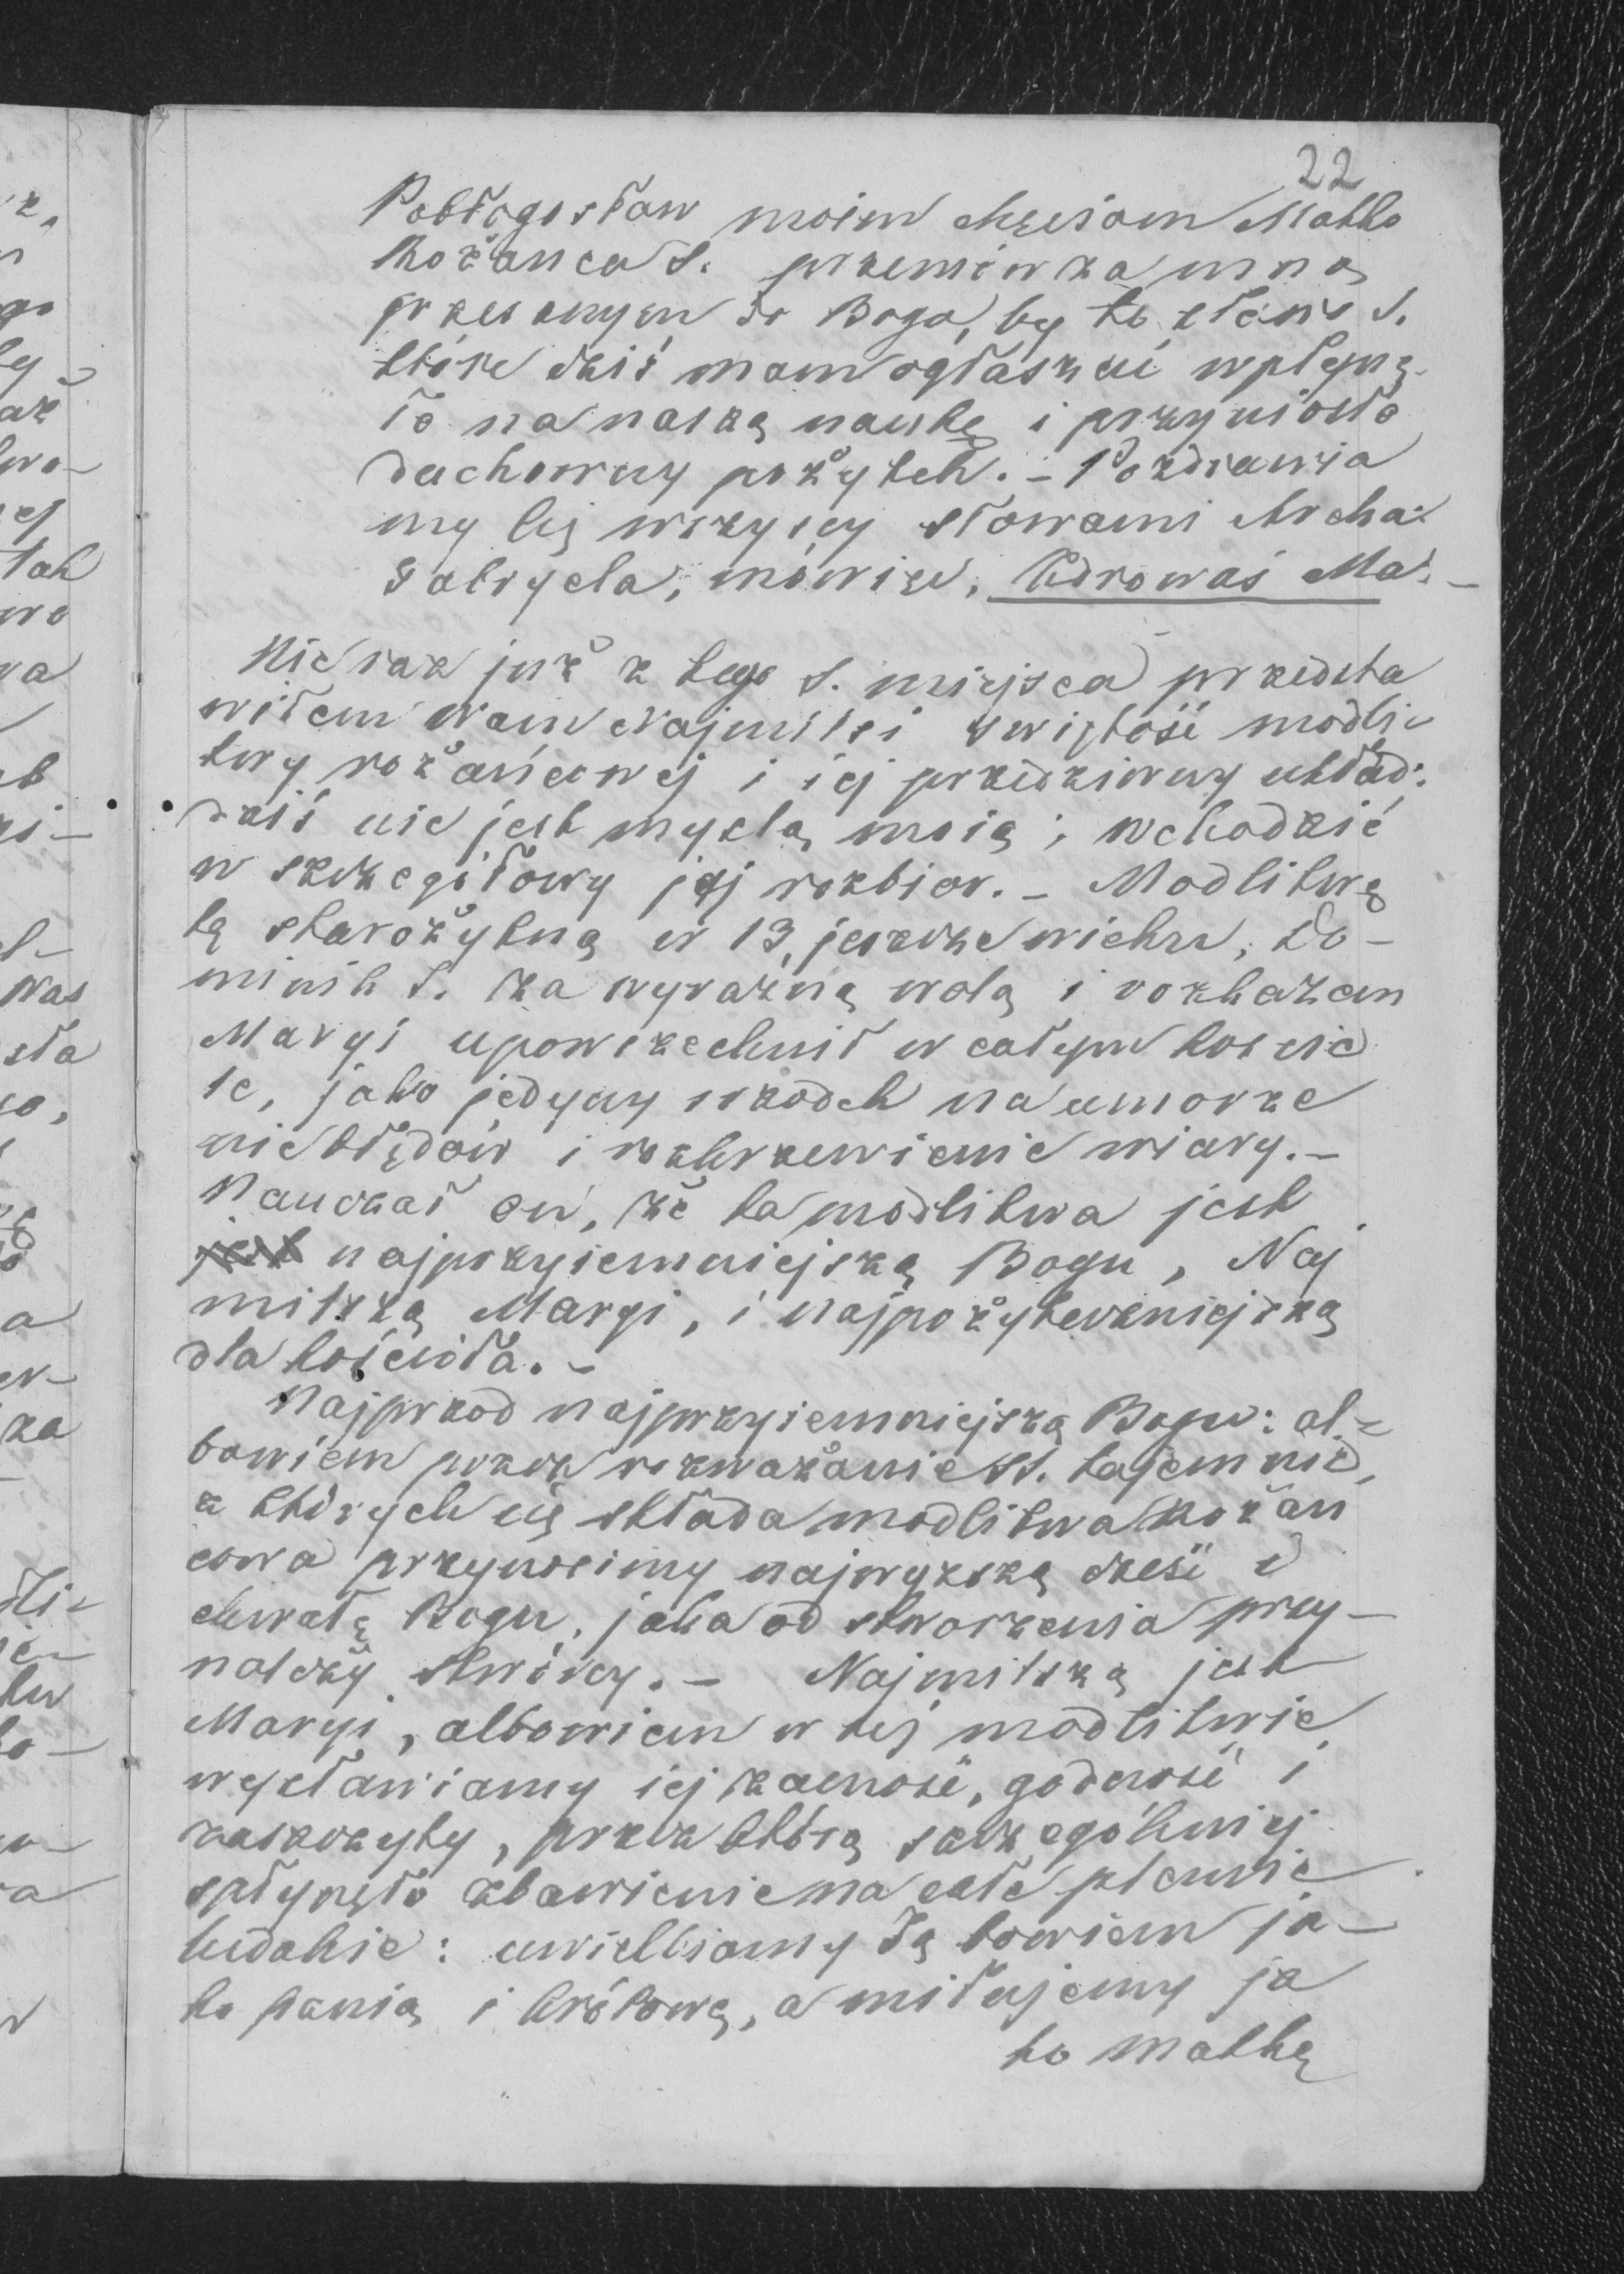 22
Pobłogosław moim chęciom Matko
Rożańca S. przemów za mną
grzesznym do Boga, by to słowo S.
które dziś mam ogłaszać wpłynę-
ło na naszą naukę i przyniosło
duchowny pożytek. – Pozdrawia
my Cię wszyscy słowami Archa:
Gabryela, mówiąc, Zdrowaś Ma: –
Nie raz już z tego S. miejsca przedsta
wiłem Wam Najmilsi świętość modli-
twy rożańcowej i iej przedziwny układ:
dziś nie jest myślą moią; wchodzić
w szczegółowy jej rozbiór. – Modlitwę
tę starożytną w 13, jeszcze wieku, Do-
minik S. za wyraźną wolą i rozkazem
Maryi upowszechnił w całym koście
le, jako jedyny środek na umorze
nie błędów i rozkrzewienie wiary. –
Nauczał on, że ta modlitwa jest
jest najprzyiemniejszą Bogu, Naj
milszą Maryi, i najpożyteczniejszą
dla kościoła. –
Najprzod najprzyiemniejszą Bogu: al-
bowiem przez rozważanie SS. tajemnic,
z których się składa modlitwa Rożań
cowa przynosimy najwyższą cześć i
chwałę Bogu, jaka od stworzenia przy-
należy Stwórcy. – Najmilszą jest
Maryi, albowiem w tej modlitwie
wysławiamy iej zacność, godność i
zaszczyty, przez którą szczególniej
spłynęło zbawienie na całe plemie
ludzkie: uwielbiamy Ią bowiem ja-
ko panią i królowę, a miłujemy ja
ko matkę